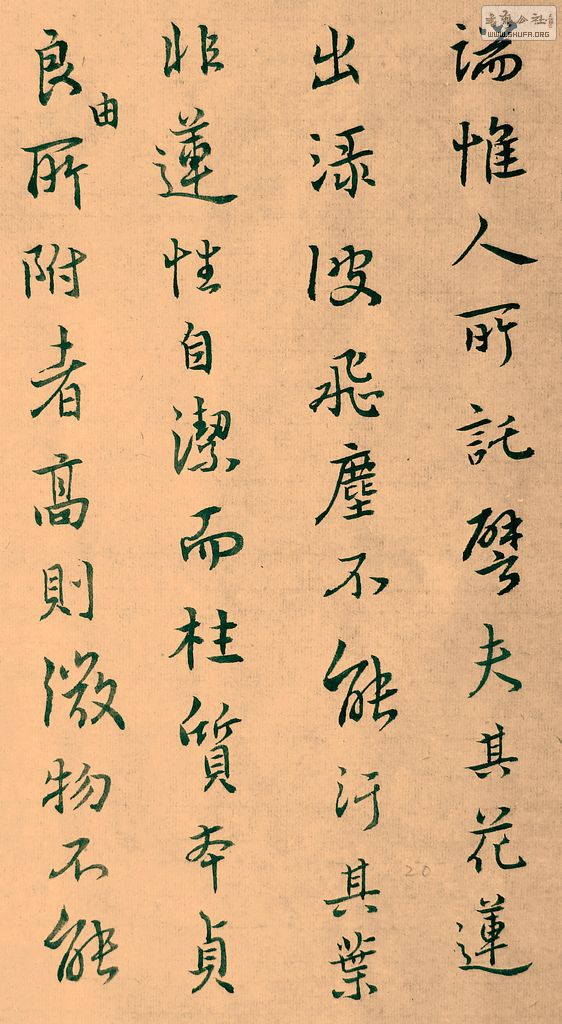 端惟人所託譬夫其花蓮
出淥波飛塵不能汙其葉
非蓮性自潔而桂質本貞
良由所附者高則微物不能
书法公社
WWW.SHUFA.ORG
20